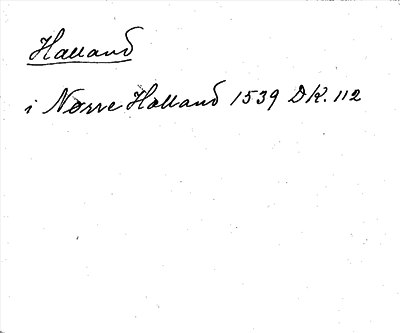 Halland
i Nørre Halland 1539 DK. 112